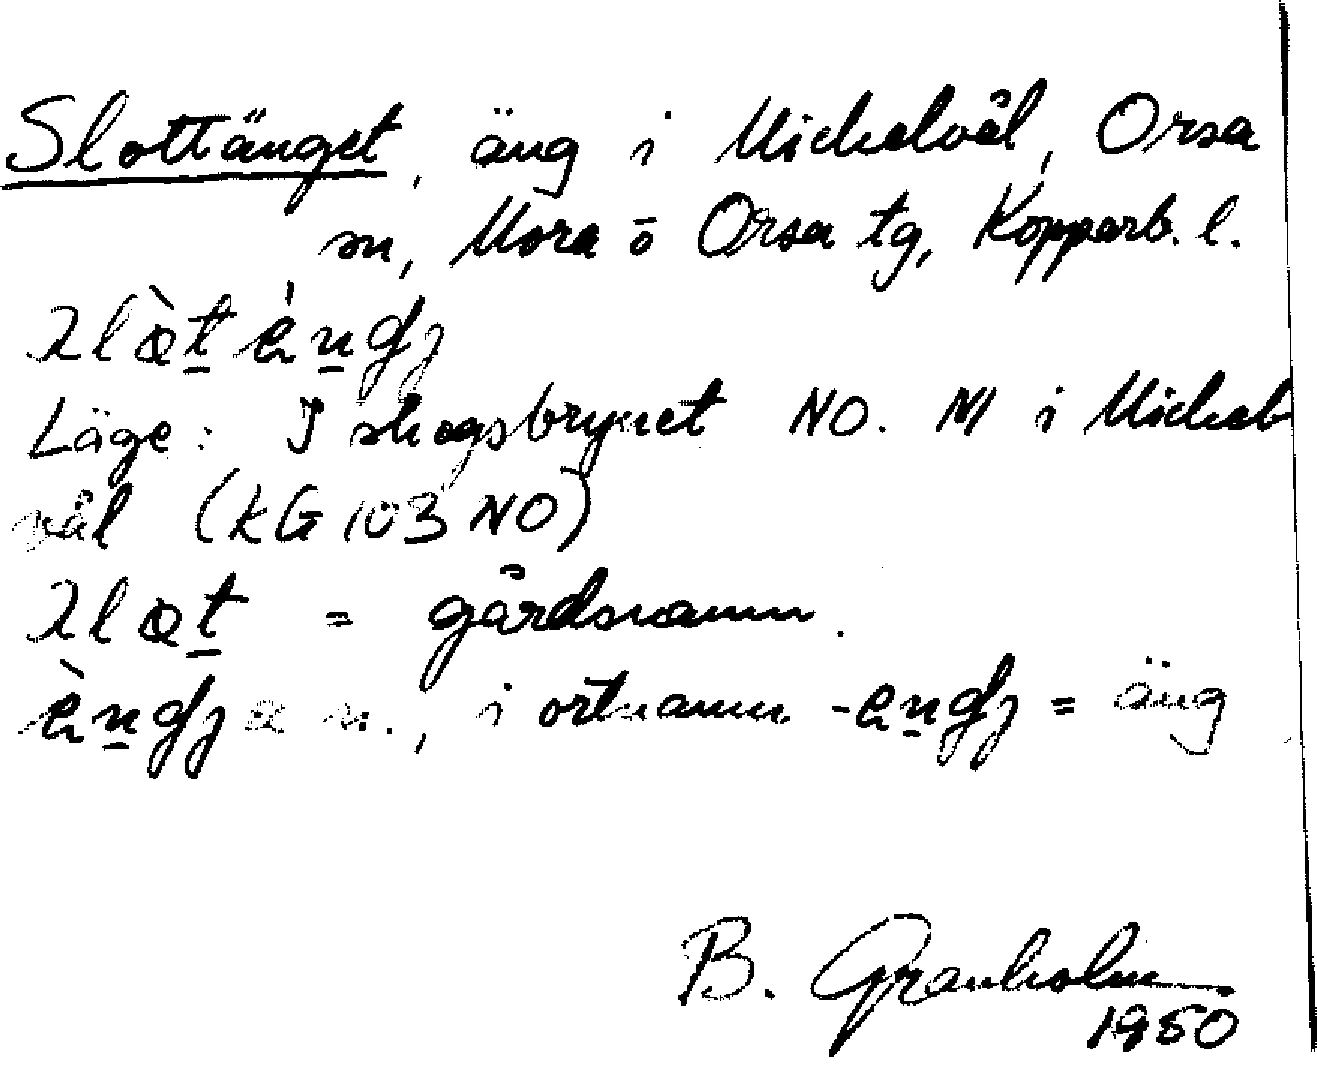 Slottänget, äng i Mickelvål, Orsa
sn, Mora o Orsa tg, Kopparb. l.
Läge: I skogsbrynet NO. M i Mickel-
vål (KG 103 NO)
= gårdsnamn.
n., i ortnamn = äng
B. Granholm
1950